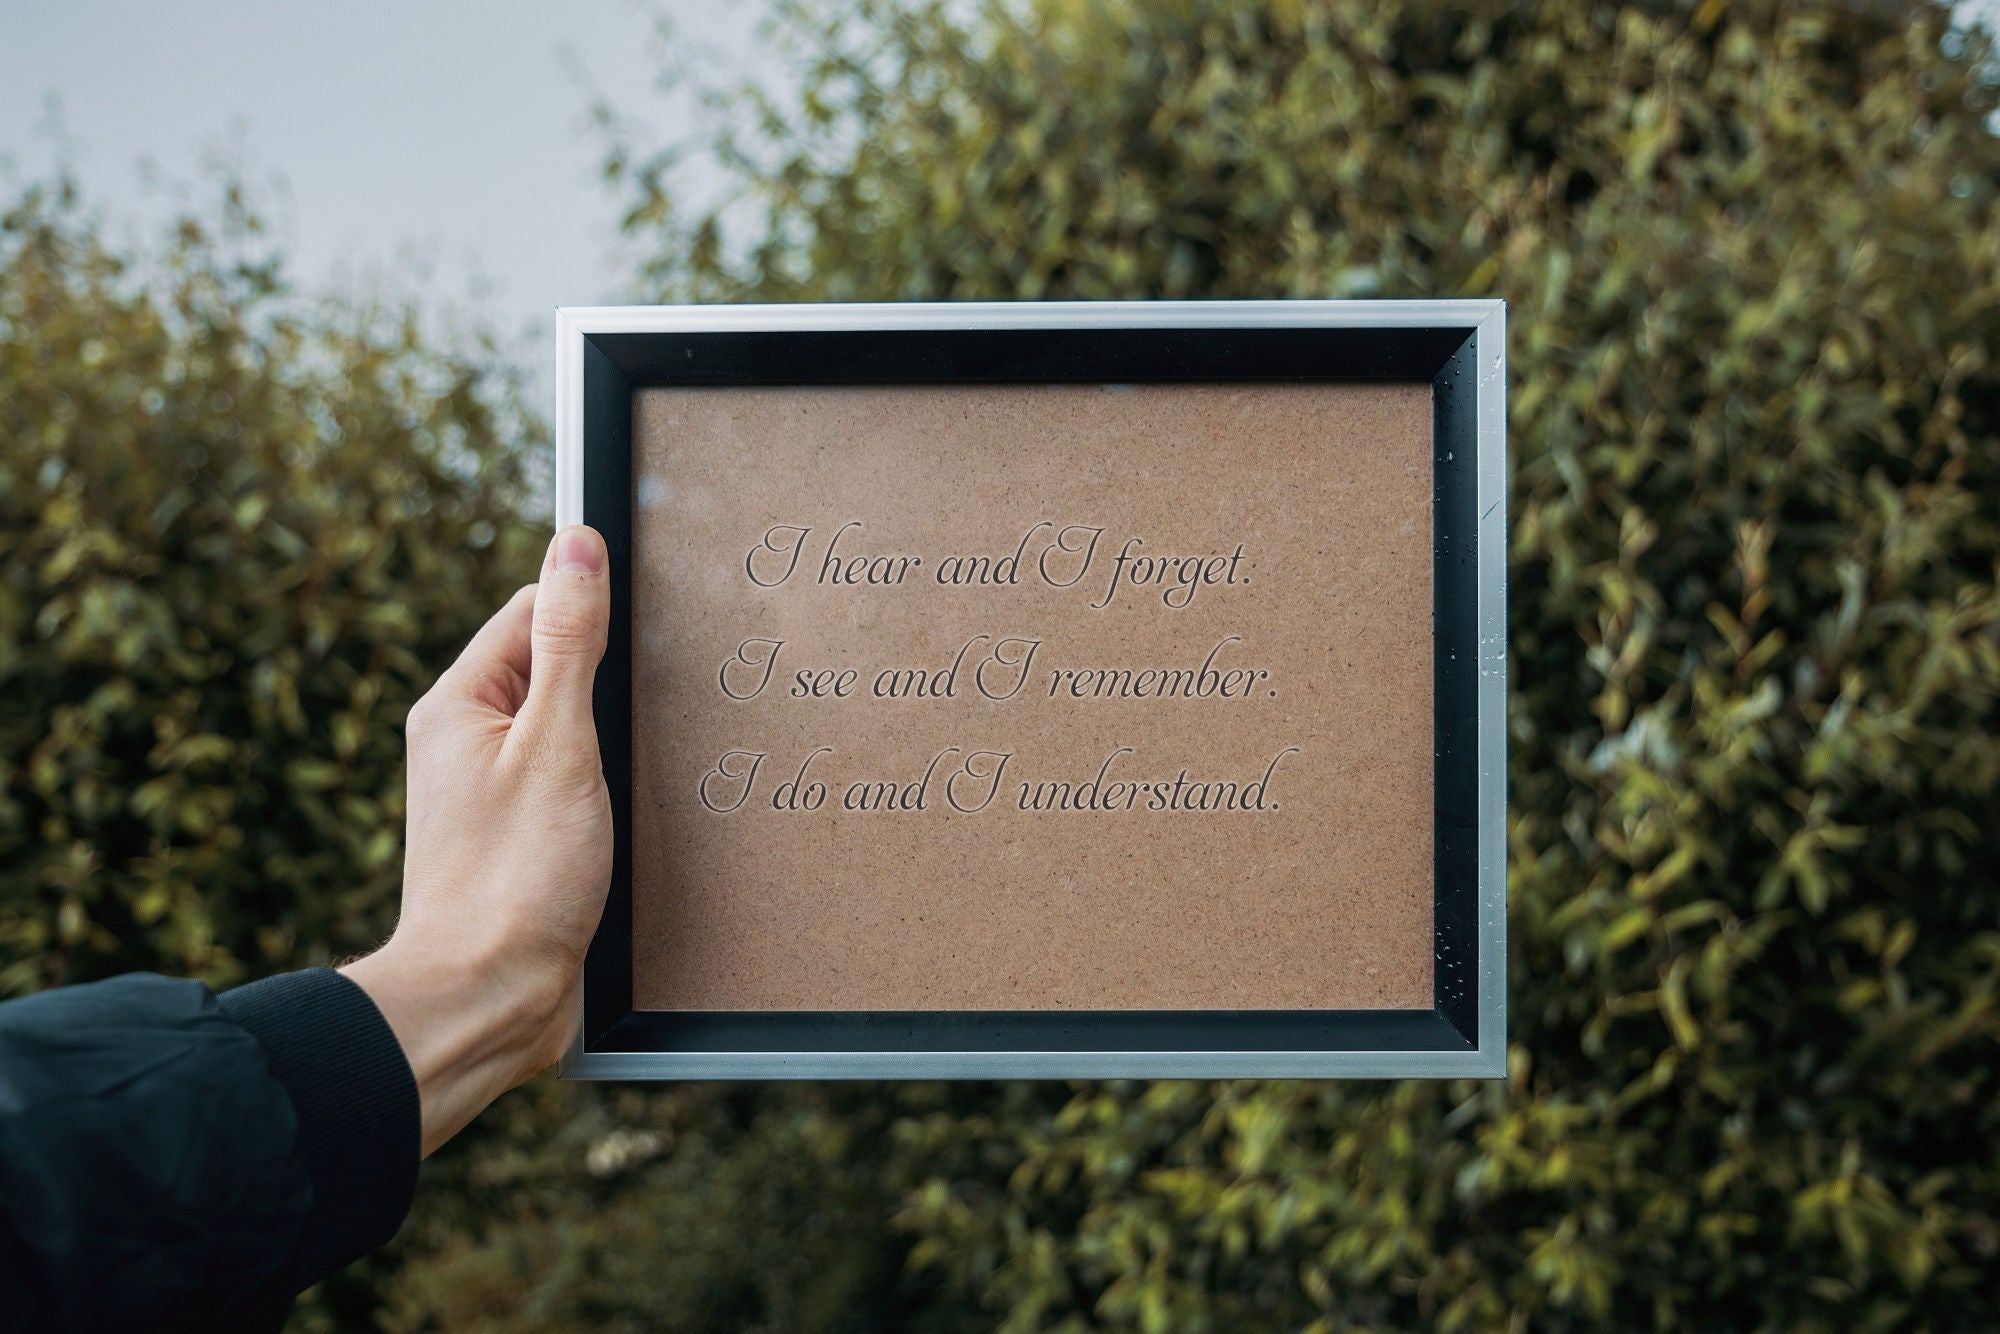 I hear and I forget.
I see and I remember.
I do and I understand.